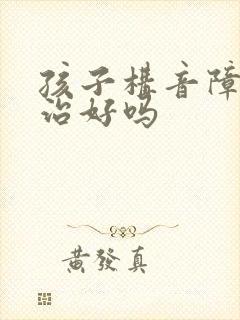 孩子構音障
治好吗
黃發真